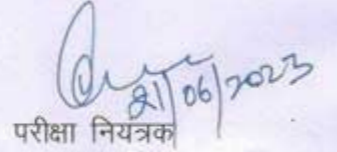 21/06/2023
परीक्षा नियत्रक